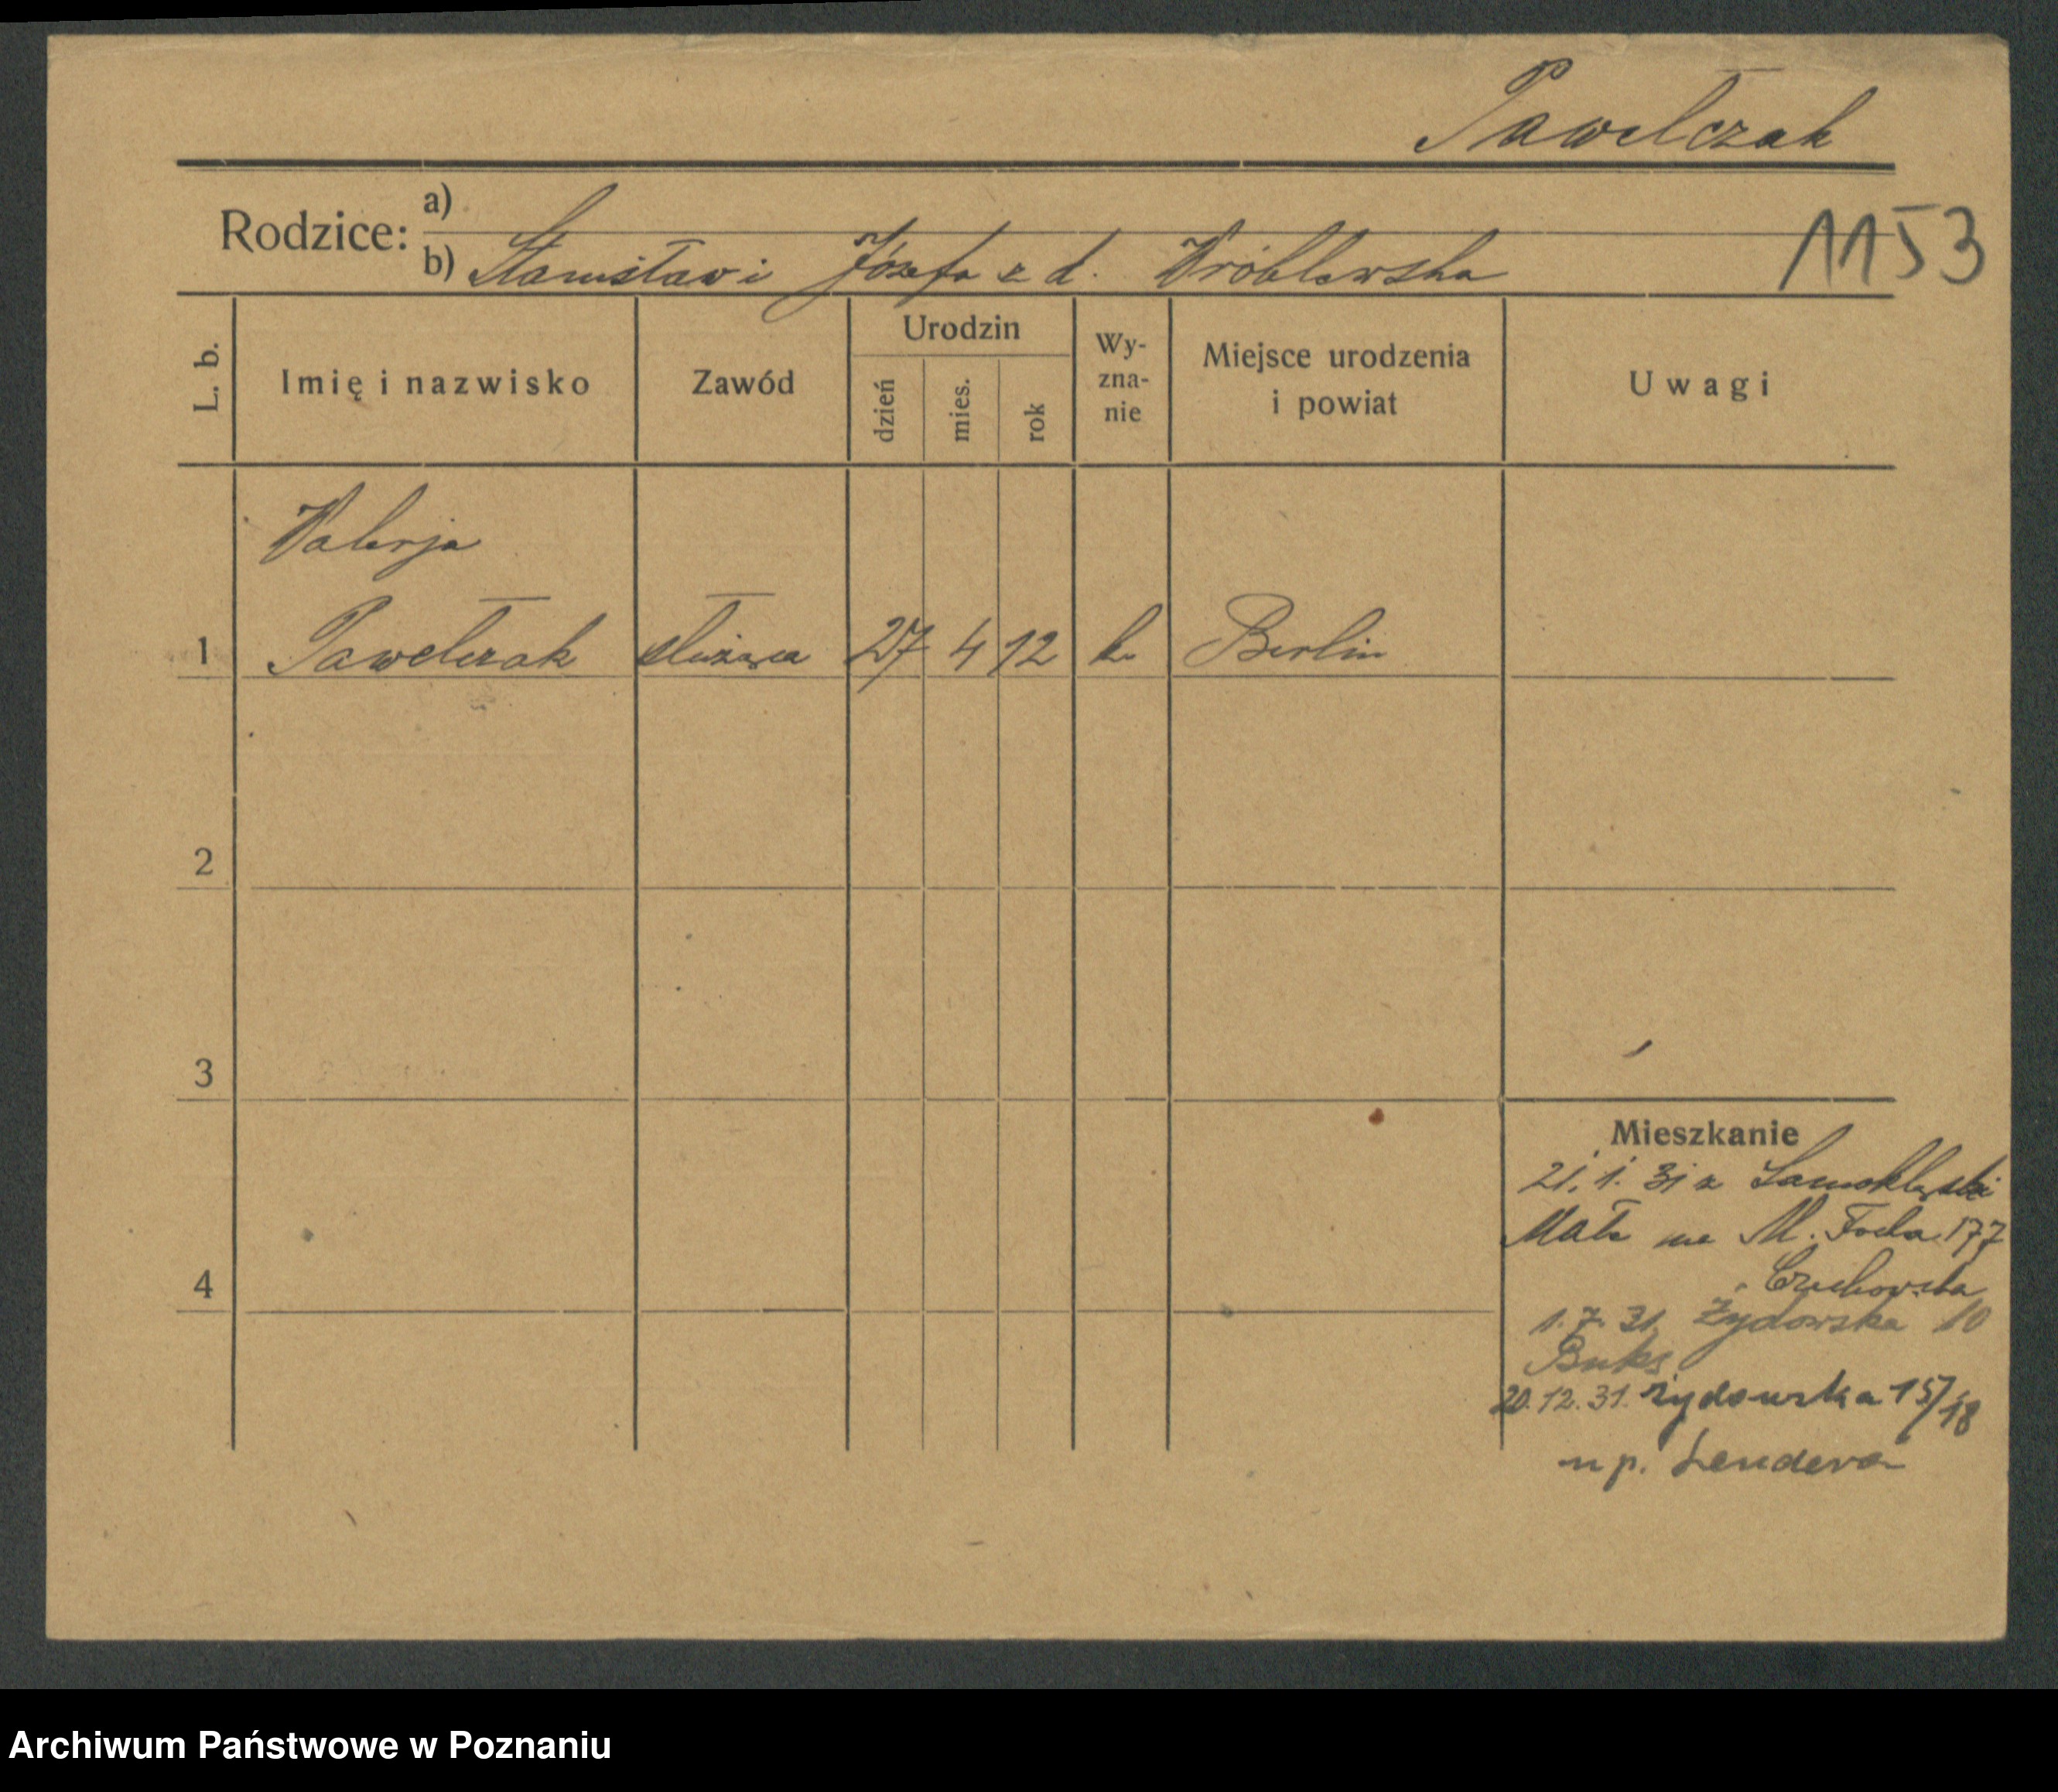 Pawełczak
1153
Rodzice: a)
b) Stanisław i Józefa z d. Wróblewska
L. b.
Imię i nazwisko
Zawód
Urodzin
dzień
mies.
rok
Wy-
zna-
nie
Miejsce urodzenia
i powiat
Uwagi
Walerja
1 Pawełczak służąca 27 4 12 k. Berlin
2
3
4
Mieszkanie
21. 1. 31 z Samoklęski
Małe na M. Focha 177
1. 7. 31. Żydowska 10
20. 12. 31. Żydowska 15/18
u p. Lendera
Archiwum Państwowe w Poznaniu